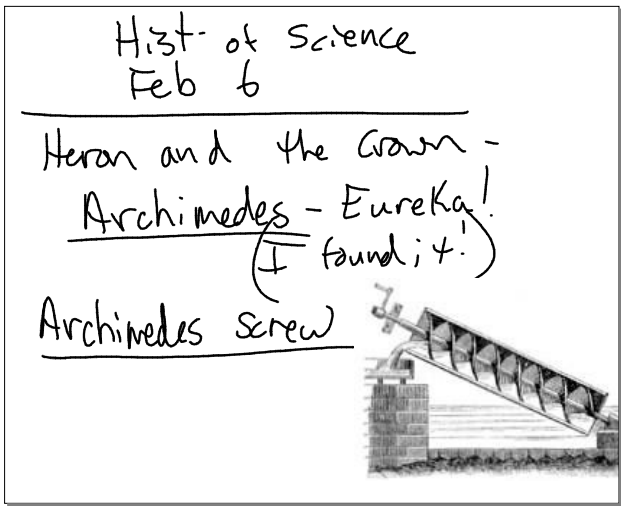 Hist. of Science
Feb 6
Heron and the Crown -
Archimedes - Eureka!
(I found it!)
Archimedes screw